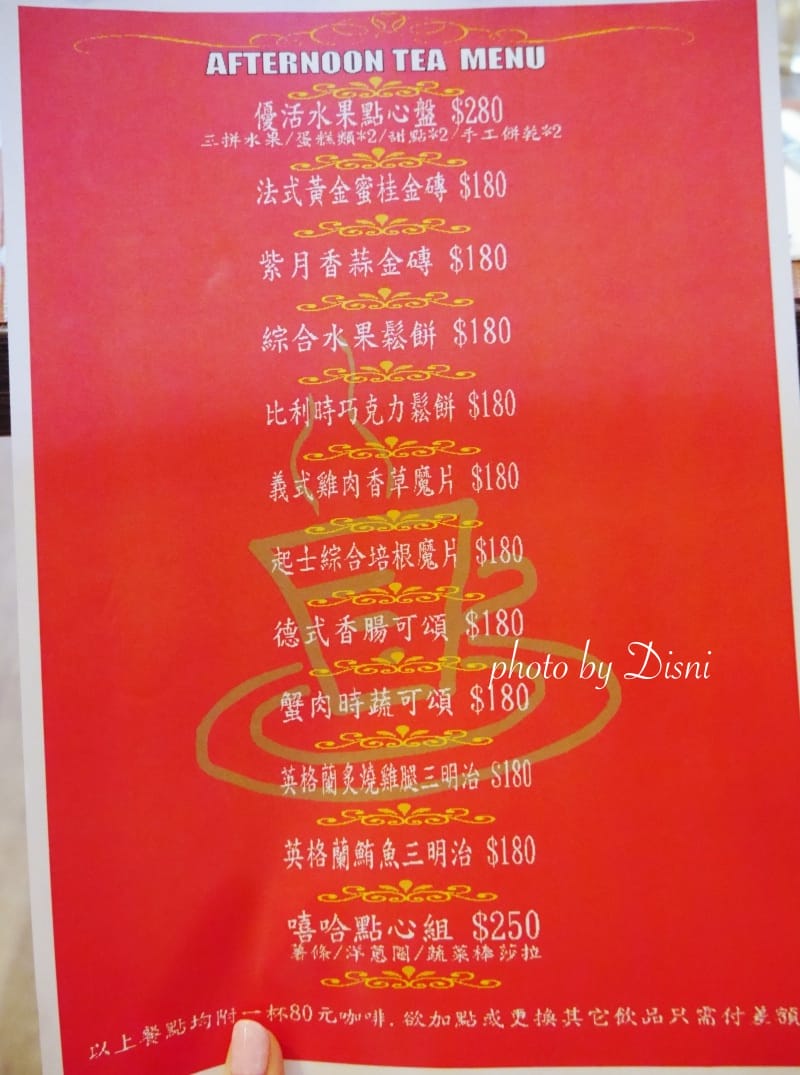 AFTERNOON TEA MENU
優活水果點心盤 $280
三拼水果/蛋糕類*2/甜點*2/手工餅乾*2
法式黃金蜜桂金磚 $180
紫月香蒜金磚 $180
綜合水果鬆餅 $180
比利時巧克力鬆餅 $180
義式雞肉香草魔片 $180
起士綜合培根魔片 $180
德式香腸可頌 $180
photo by Disni
蟹肉時蔬可頌 $180
英格蘭炙燒雞腿三明治 $180
英格蘭鮪魚三明治 $180
嘻哈點心組 $250
薯條/洋蔥圈/蔬菜棒莎拉
以上餐點均附一杯80元咖啡.欲加點或更換其它飲品只需付差額